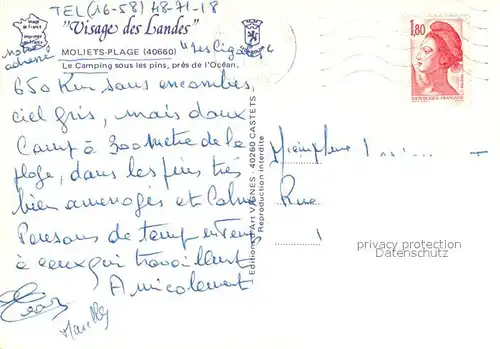 TEL (16-58) 48-71-18
Image de France
imprimée en France
"Visage des Landes"
notre adresse
MOLIETS-PLAGE (40660) "Les Cigales"
Le Camping sous les pins, près de l'Océan.
650 Km sans encombres,
ciel gris, mais doux
Camp à 300 Mètre de la
plage, dans les pins très
bien amenagés et Calme
Pensons de temps en temps
à ceux qui travaillent
Amicalement
Editions d'Art VAGNES - 40260 CASTETS
Reproduction interdite
1,80
REPUBLIQUE FRANÇAISE
Rue
privacy protection
Datenschutz